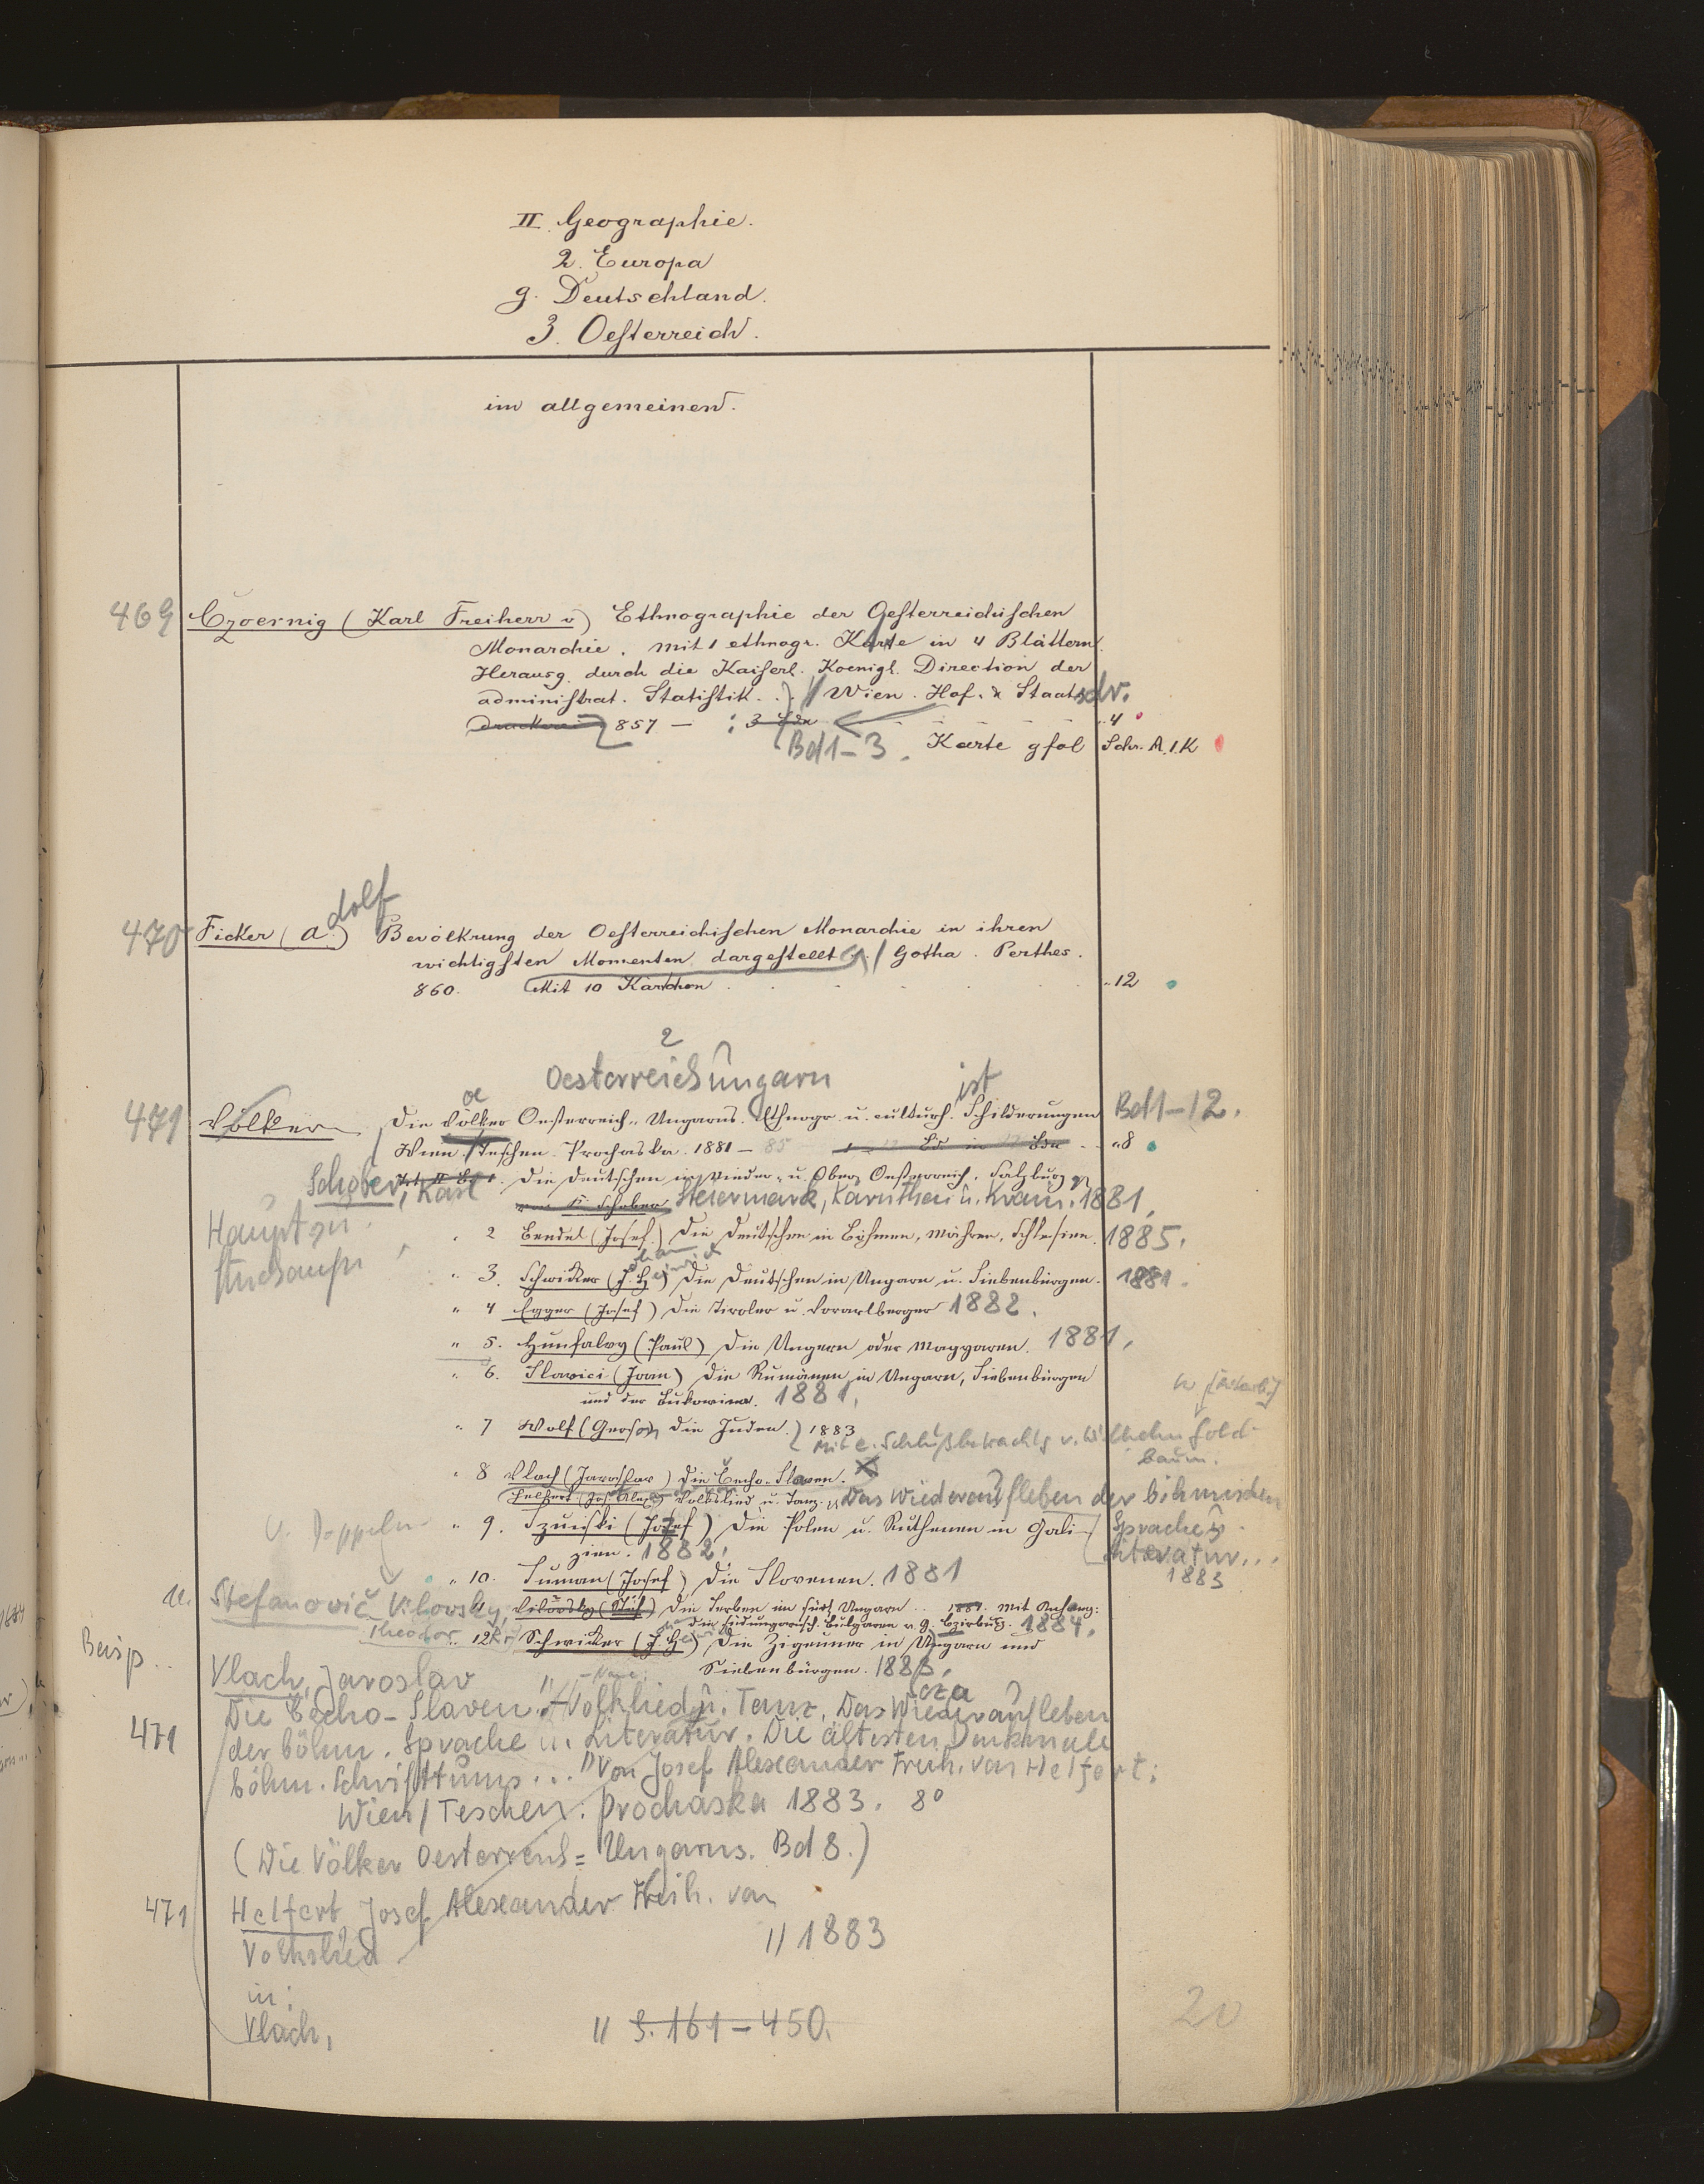 II. Geographie.
2. Europa
g. Deutschland.
3. Oesterreich.
im allgemeinen.
469 Czoernig (Karl Freiherr v) Ethnographie der Oesterreichischen
Monarchie. mit 1 ethnogr. Karte in 4 Blättern.
Herausg. durch die Kaiserl. Koenigl. Direction der
administrat. Statistik.. // Wien. Hof. & Staatsdr.
Druckerei 857 — : 3 "4
Bd 1-3. Karte gfol Schr. A.1.K
470 Ficker (A.dolf) Bevölkrung der Oesterreichischen Monarchie in ihren
wichtigsten Momenten dargestellt. / Gotha. Perthes.
860. Mit 10 Kärtchen "12
2
Oesterreich Ungarn
471 Völker Die Völker Oesterreich-Ungarns. Ethnogr. u. culturh.ist Schilderungen Bd 1-12.
Wien / Teschen. Prochaska. 1881 - 85 "8
Schober, Karl Die Deutschen in Nieder- u. Ober Oesterreich, Salzburg
von K. Schober Steiermark, Kärnthen u. Krain. 1881.
Haupt
" 2 Bendel (Josef) Die Deutschen in Böhmen, Mähren, Schlesien. 1885.
" 3. Schwicker (J. H.) Die Deutschen in Ungarn u. Siebenbürgen. 1881.
" 4 Egger (Josef) Die Tiroler u. Vorarlberger 1882.
" 5. Hunfalvy (Paul) Die Ungern oder Magyaren. 1881.
" 6. Slavici (Joan) Die Rumänen in Ungarn, Siebenbürgen
und der Bukowina. 1881.
" 7 Wolf (Gerson) Die Juden. 1883
Mit e. Schlußbetrachtg v. Wilhelm Gold-
baum.
" 8 Vlach (Jaroslav) Die Čecho-Slaven.
Helfert (Jos. Alex) Volkslied u. Tanz. Das Wiederaufleben der böhmischen
" 9. Szujski (Josef) Die Polen u. Ruthenen in Gali- Sprache u
zien. 1882. Literatur...
1883
" 10. Šuman (Josef) Die Slovenen. 1881
11. Stefanovič Vilovsky, Vilovsky (Stef) Die Serben im südl. Ungarn .. 1881. Mit Anhang:
Theodor Die südungarisch. Bulgaren v. G. Czirbusz. 1884.
" 12. Schwicker (J. H.) Die Zigeuner in Ungarn und
Siebenbürgen. 1883.
Beisp..
Vlach, Jaroslav
Die Čecho-Slaven. Volkslied u. Tanz. Das Wiederaufleben
471 der böhm. Sprache u. Literatur. Die ältesten Denkmale
böhm. Schrifttums... " Von Josef Alexander Freih. von Helfert:
Wien / Teschen: Prochaska 1883. 8°
(Die Völker Oesterreich=Ungarns. Bd 8.)
471 Helfert, Josef Alexander Freih. von
Volkslied // 1883
in:
Vlach, // S. 161-450.
20